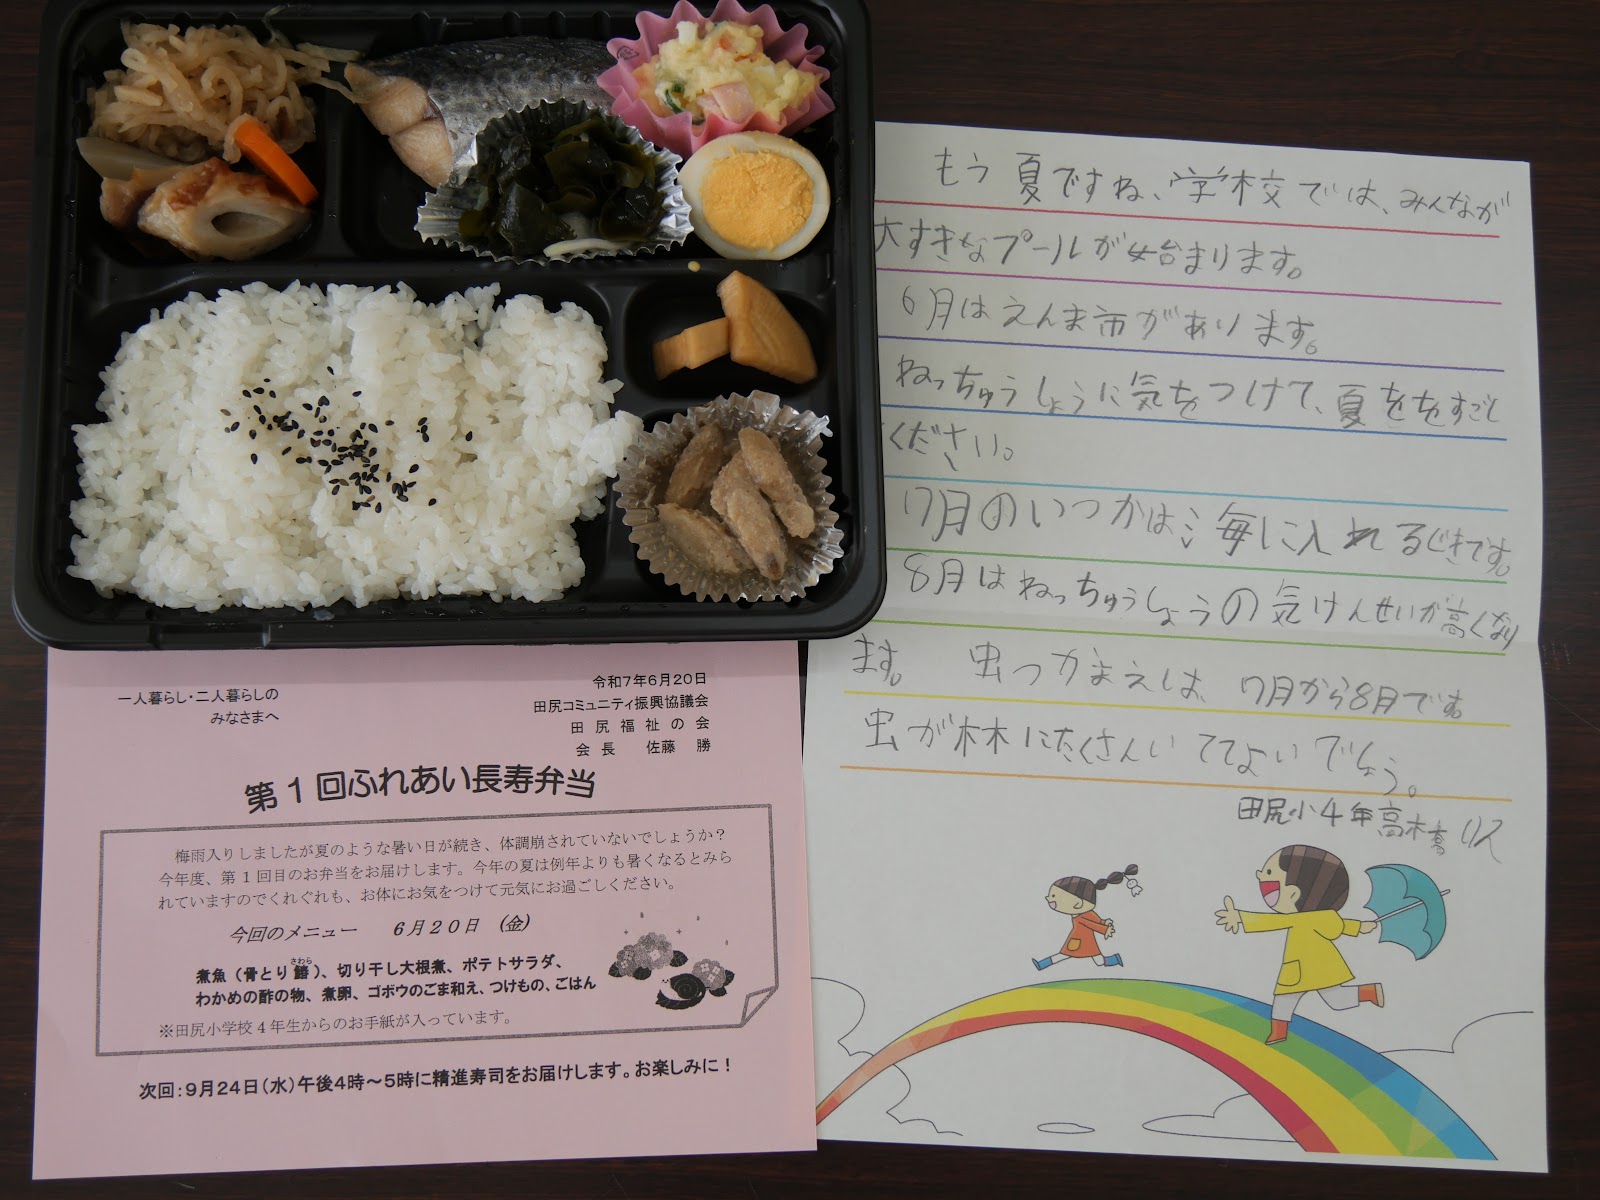 もう夏ですね、学校では、みんなが
大すきなプールが始まります。
6月はえんま市があります。
ねっちゅうしょうに気をつけて、夏ををすごし
ください。
7月のいつかは海に入れるじきです。
8月はねっちゅうしょうの気けんせいが高くなり
ます。 虫つかまえしは、7月から8月です。
虫が林にたくさんいててよいでしょう。
田尻小4年高橋
一人暮らし・二人暮らしの
みなさまへ
令和7年6月20日
田尻コミュニティ振興協議会
田尻福祉の会
会長 佐藤 勝
第1回ふれあい長寿弁当
梅雨入りしましたが夏のような暑い日が続き、体調崩されていないでしょうか?
今年度、第1回目のお弁当をお届けします。今年の夏は例年よりも暑くなるとみら
れていますのでくれぐれも、お体にお気をつけて元気にお過ごしください。
今回のメニュー 6月20日 (金)
煮魚(骨とり鰆さわら)、切り干し大根煮、ポテトサラダ、
わかめの酢の物、煮卵、ゴボウのごま和え、つけもの、ごはん
※田尻小学校4年生からのお手紙が入っています。
次回:9月24日(水)午後4時～5時に精進寿司をお届けします。お楽しみに!